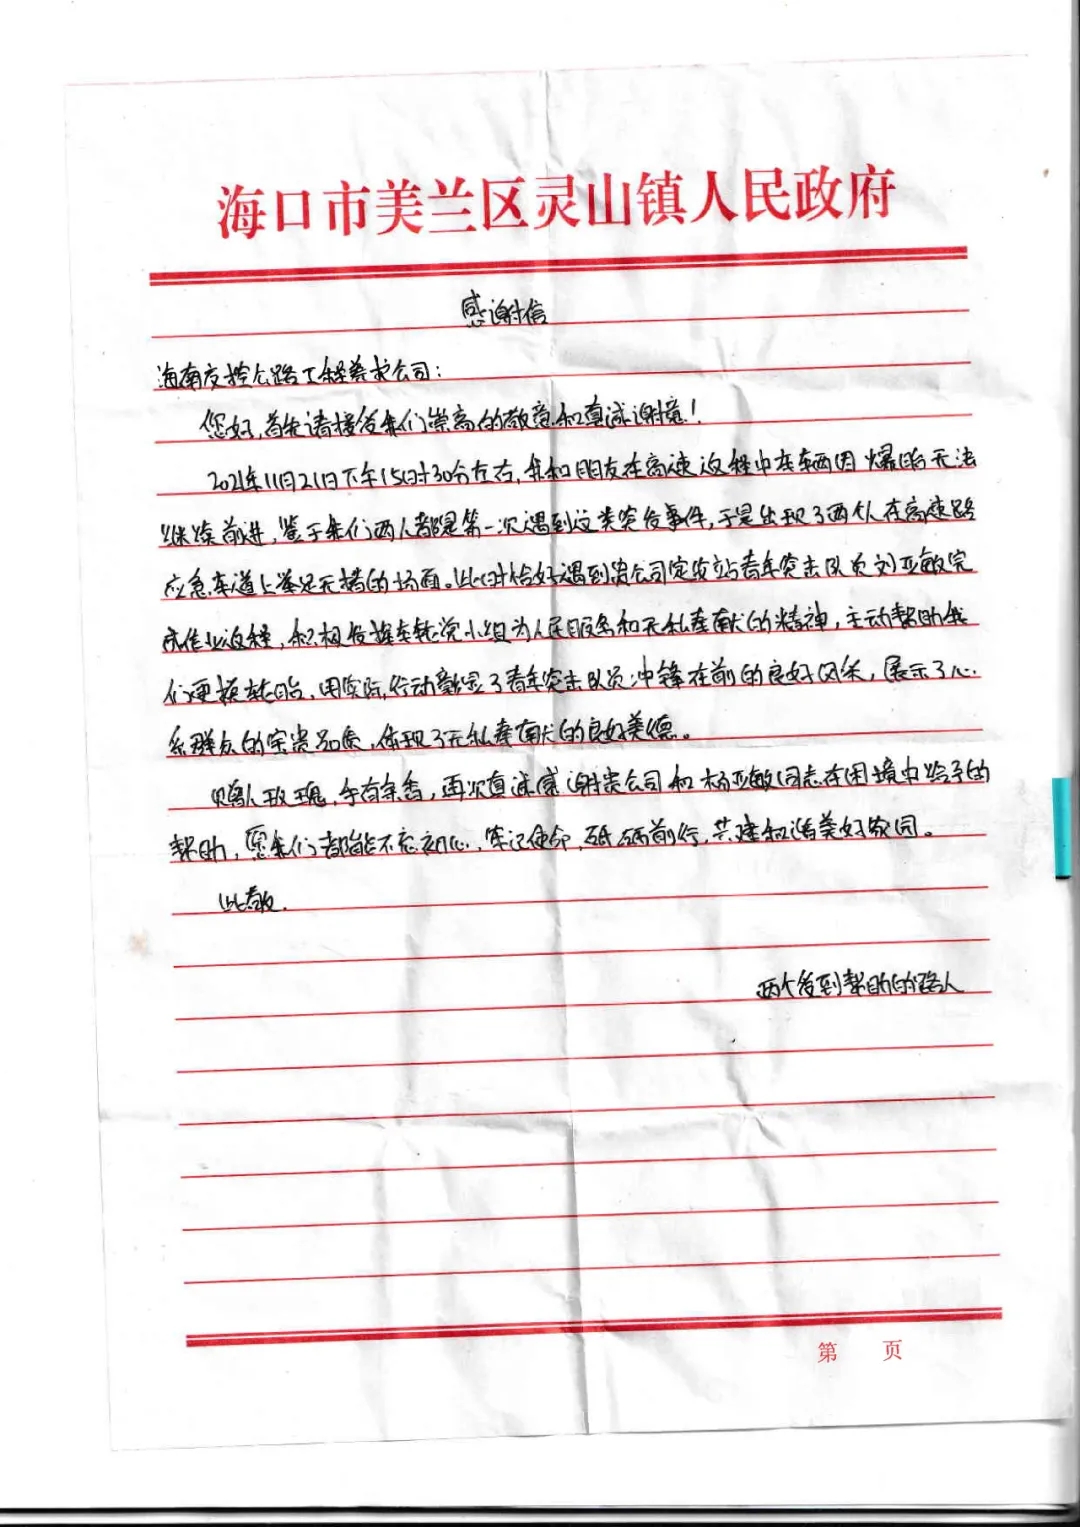 海口市美兰区灵山镇人民政府
感谢信
海南交控公路工程养护公司：
您好，首先请接受我们崇高的敬意和真诚谢意！
2021年11月21日下午15时30分左右，我和朋友在高速返程中车辆因爆胎无法
继续前进，鉴于我们两人都是第一次遇到这类突发事件，于是出现了两个人在高速路
应急车道上举足无措的场面。此时恰好遇到贵公司定安站青年突击队员刘亚敏完
成作业返程，积极发挥车轮党小组为人民服务和无私奉献的精神，主动帮助我
们更换轮胎，用实际行动彰显了青年突击队员冲锋在前的良好风采，展示了心
系群众的宝贵品质，体现了无私奉献的良好美德。
赠人玫瑰，手有余香，再次真诚感谢贵公司和杨亚敏同志在困境中给予的
帮助，愿我们都能不忘初心，牢记使命，砥砺前行，共建和谐美好家园。
此致。
两个受到帮助的路人
第 页